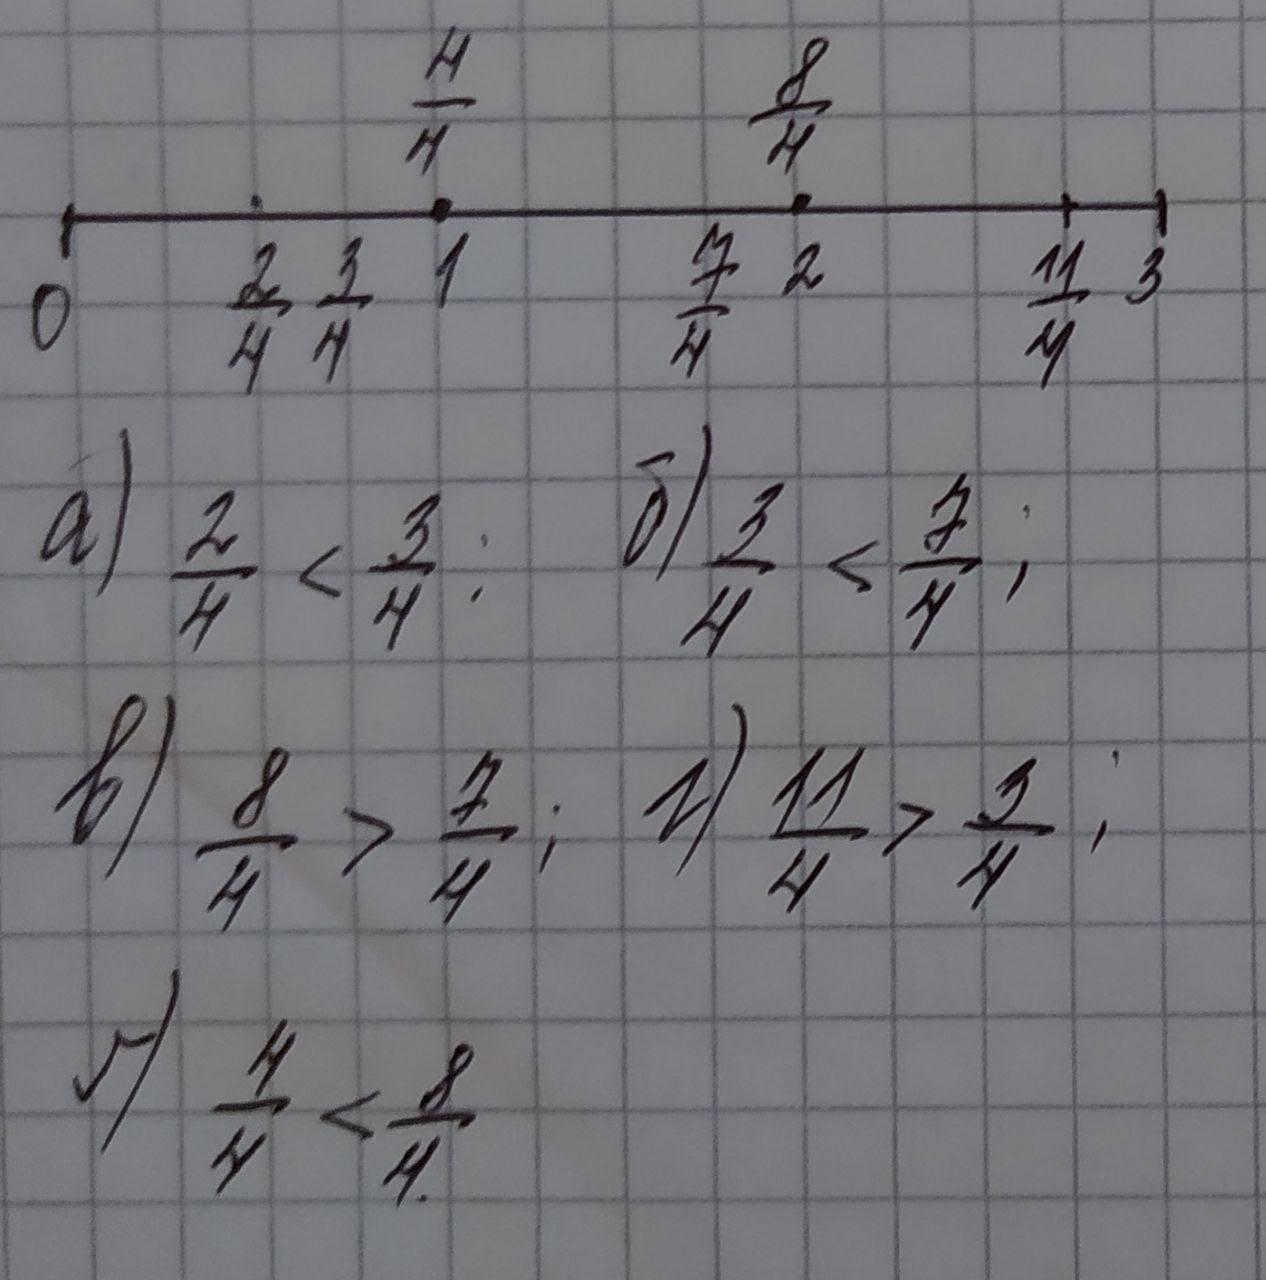 4/4 8/4
0 2/4 3/4 1 7/4 2 11/4 3
а) 2/4 < 3/4; б) 3/4 < 7/4;
в) 8/4 > 7/4; г) 11/4 > 3/4;
4/4 < 8/4.